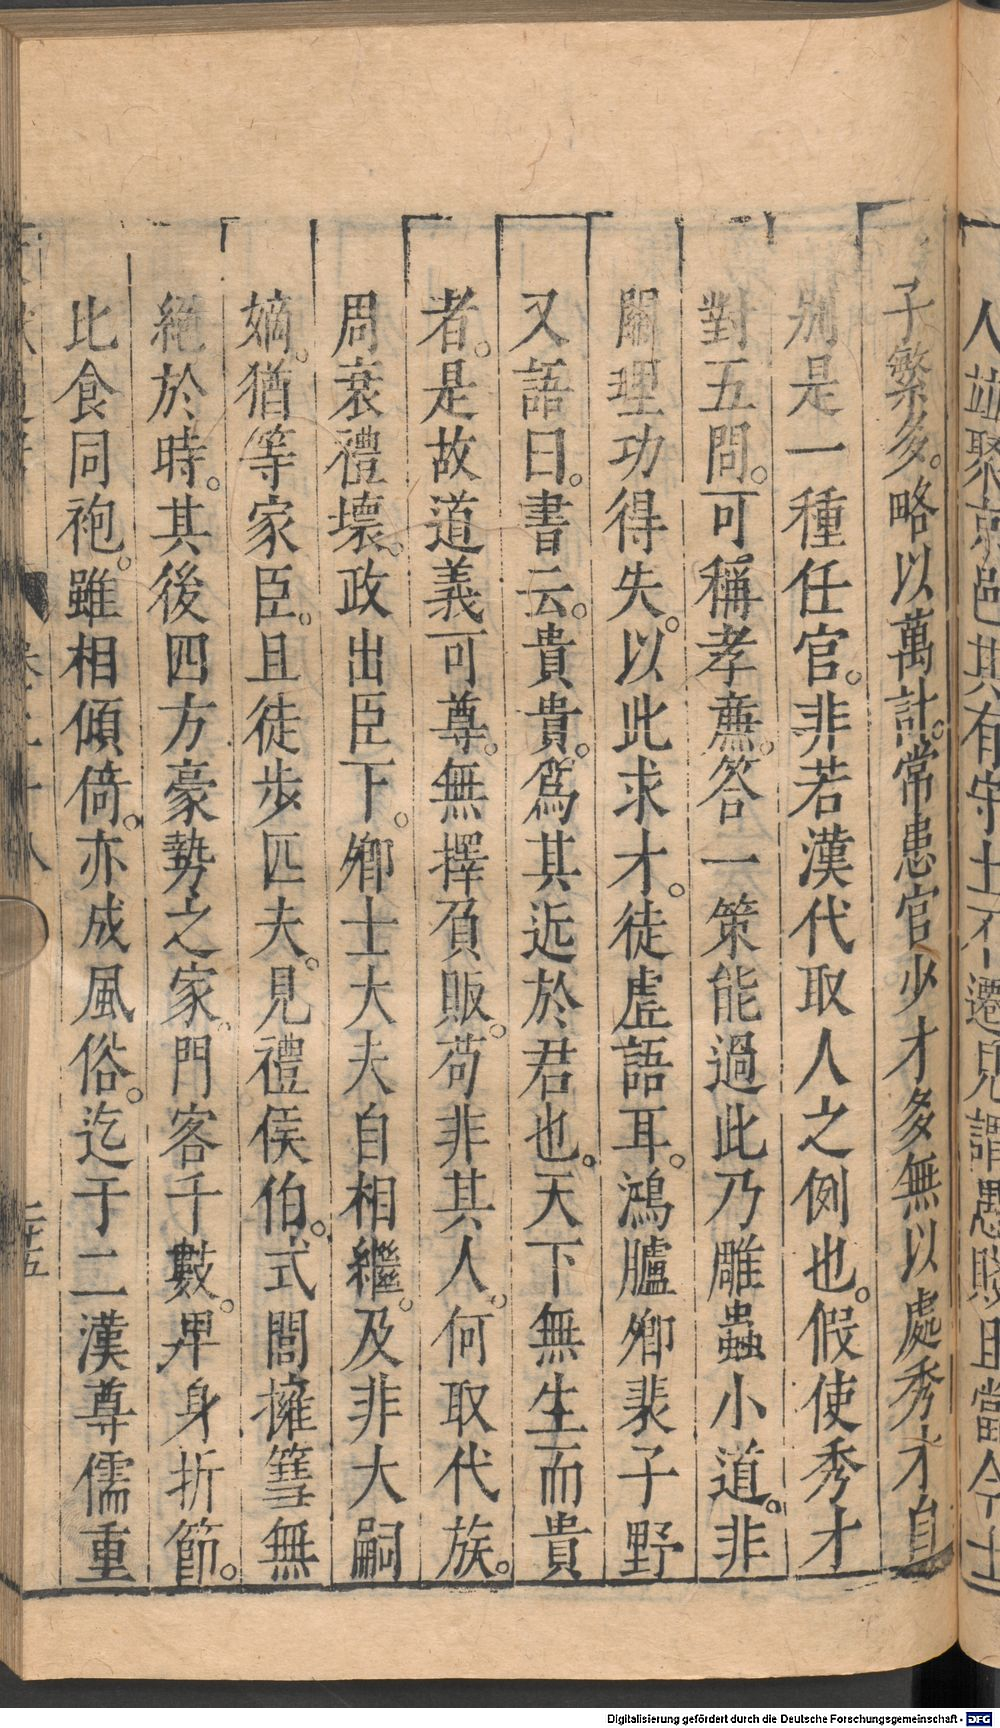 人並聚京邑其有守土不遷見謂愚賤且當今士
子繁多。略以萬計。常患官少才多無以處秀才自
别是一種任官。非若漢代取人之例也。假使秀才
對五問。可稱孝亷。答一策能過此乃雕蟲小道。非
關理功得失。以此求才。徒虗語耳。鴻臚卿裴子野
又語曰。書云。貴貴。爲其近於君也。天下無生而貴
者。是故道義可尊。無擇負販。苟非其人。何取代族。
周衰禮壞。政出臣下。卿士大夫自相繼。及非大嗣
嫡。猶等家臣。且徒步匹夫。見禮侯伯。式閭擁篲無
絕於時。其後四方豪勢之家。門客千數。卑身折節。
比食同袍。雖相傾倚。亦成風俗。迄于二漢尊儒重
二十五
Digitalisierung gefördert durch die Deutsche Forschungsgemeinschaft - DFG